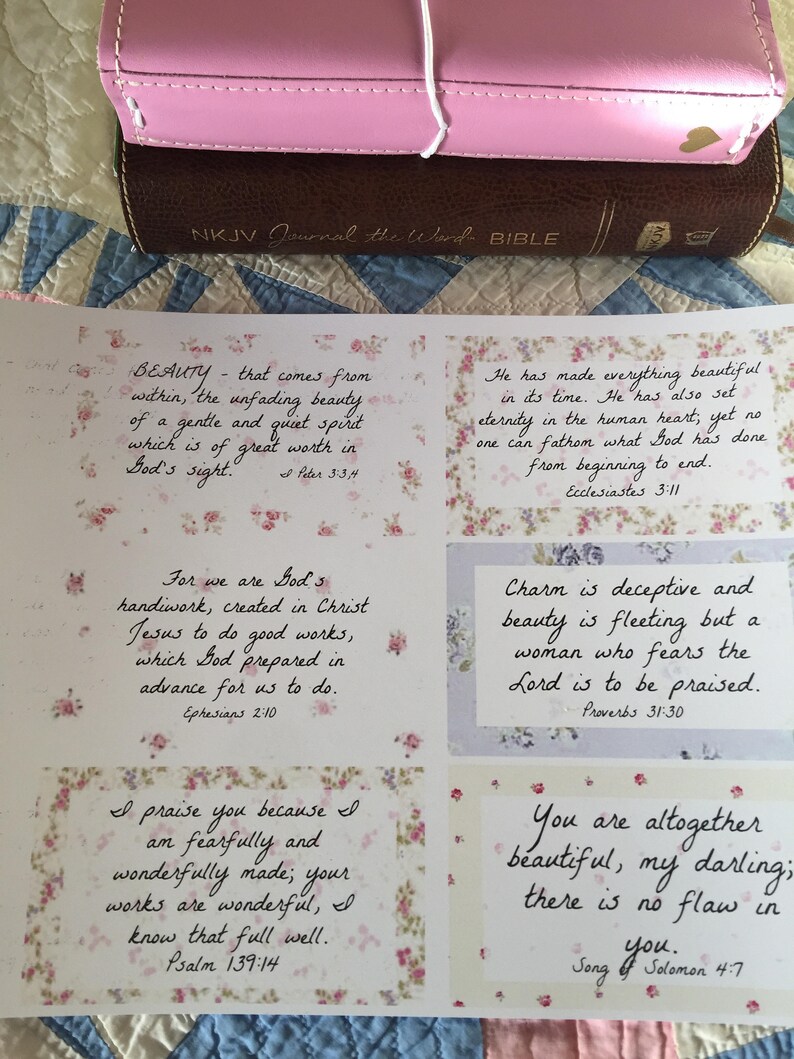 NKJV Journal the Word™ BIBLE
NKJV
BEAUTY - that comes from
within, the unfading beauty
of a gentle and quiet spirit
which is of great worth in
God's sight.
I Peter 3:3,4
He has made everything beautiful
in its time. He has also set
eternity in the human heart; yet no
one can fathom what God has done
from beginning to end.
Ecclesiastes 3:11
For we are God's
handiwork, created in Christ
Jesus to do good works,
which God prepared in
advance for us to do.
Ephesians 2:10
Charm is deceptive and
beauty is fleeting but a
woman who fears the
Lord is to be praised.
Proverbs 31:30
I praise you because I
am fearfully and
wonderfully made; your
works are wonderful, I
know that full well.
Psalm 139:14
You are altogether
beautiful, my darling;
there is no flaw in
you.
Song of Solomon 4:7